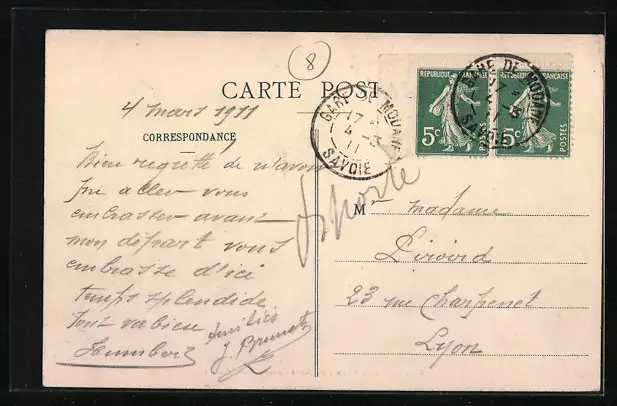 8
CARTE POST
4 mars 1911
CORRESPONDANCE
Bien regretté de n'avoir
pu aller vous
embrasser avant
mon départ vous
embrasse d'ici
temps splendide
tout va bien
Humbert
Amitiés
J.
GARE DE MODANE
17
4 - 3
11
SAVOIE
REPUBLIQUE FRANÇAISE
5c
POSTES
GARE DE MODANE
17
4 - 3
11
SAVOIE
REPUBLIQUE FRANÇAISE
5c
POSTES
M Madame
23 rue Charpenet
Lyon